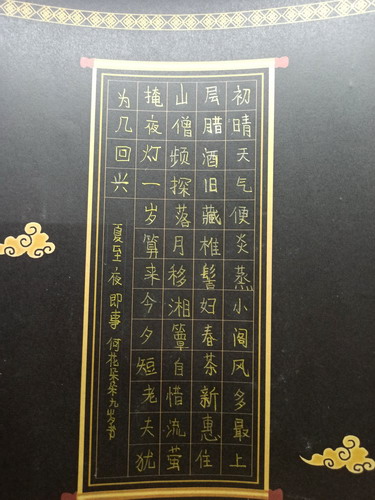 初晴天气便炎蒸小阁风多最上
层腊酒旧藏椎髻妇春茶新惠住
山僧频探落月移湘簟自惜流萤
掩夜灯一岁算来今夕短老夫犹
为几回兴
夏至夜即事何花朵朵九岁书